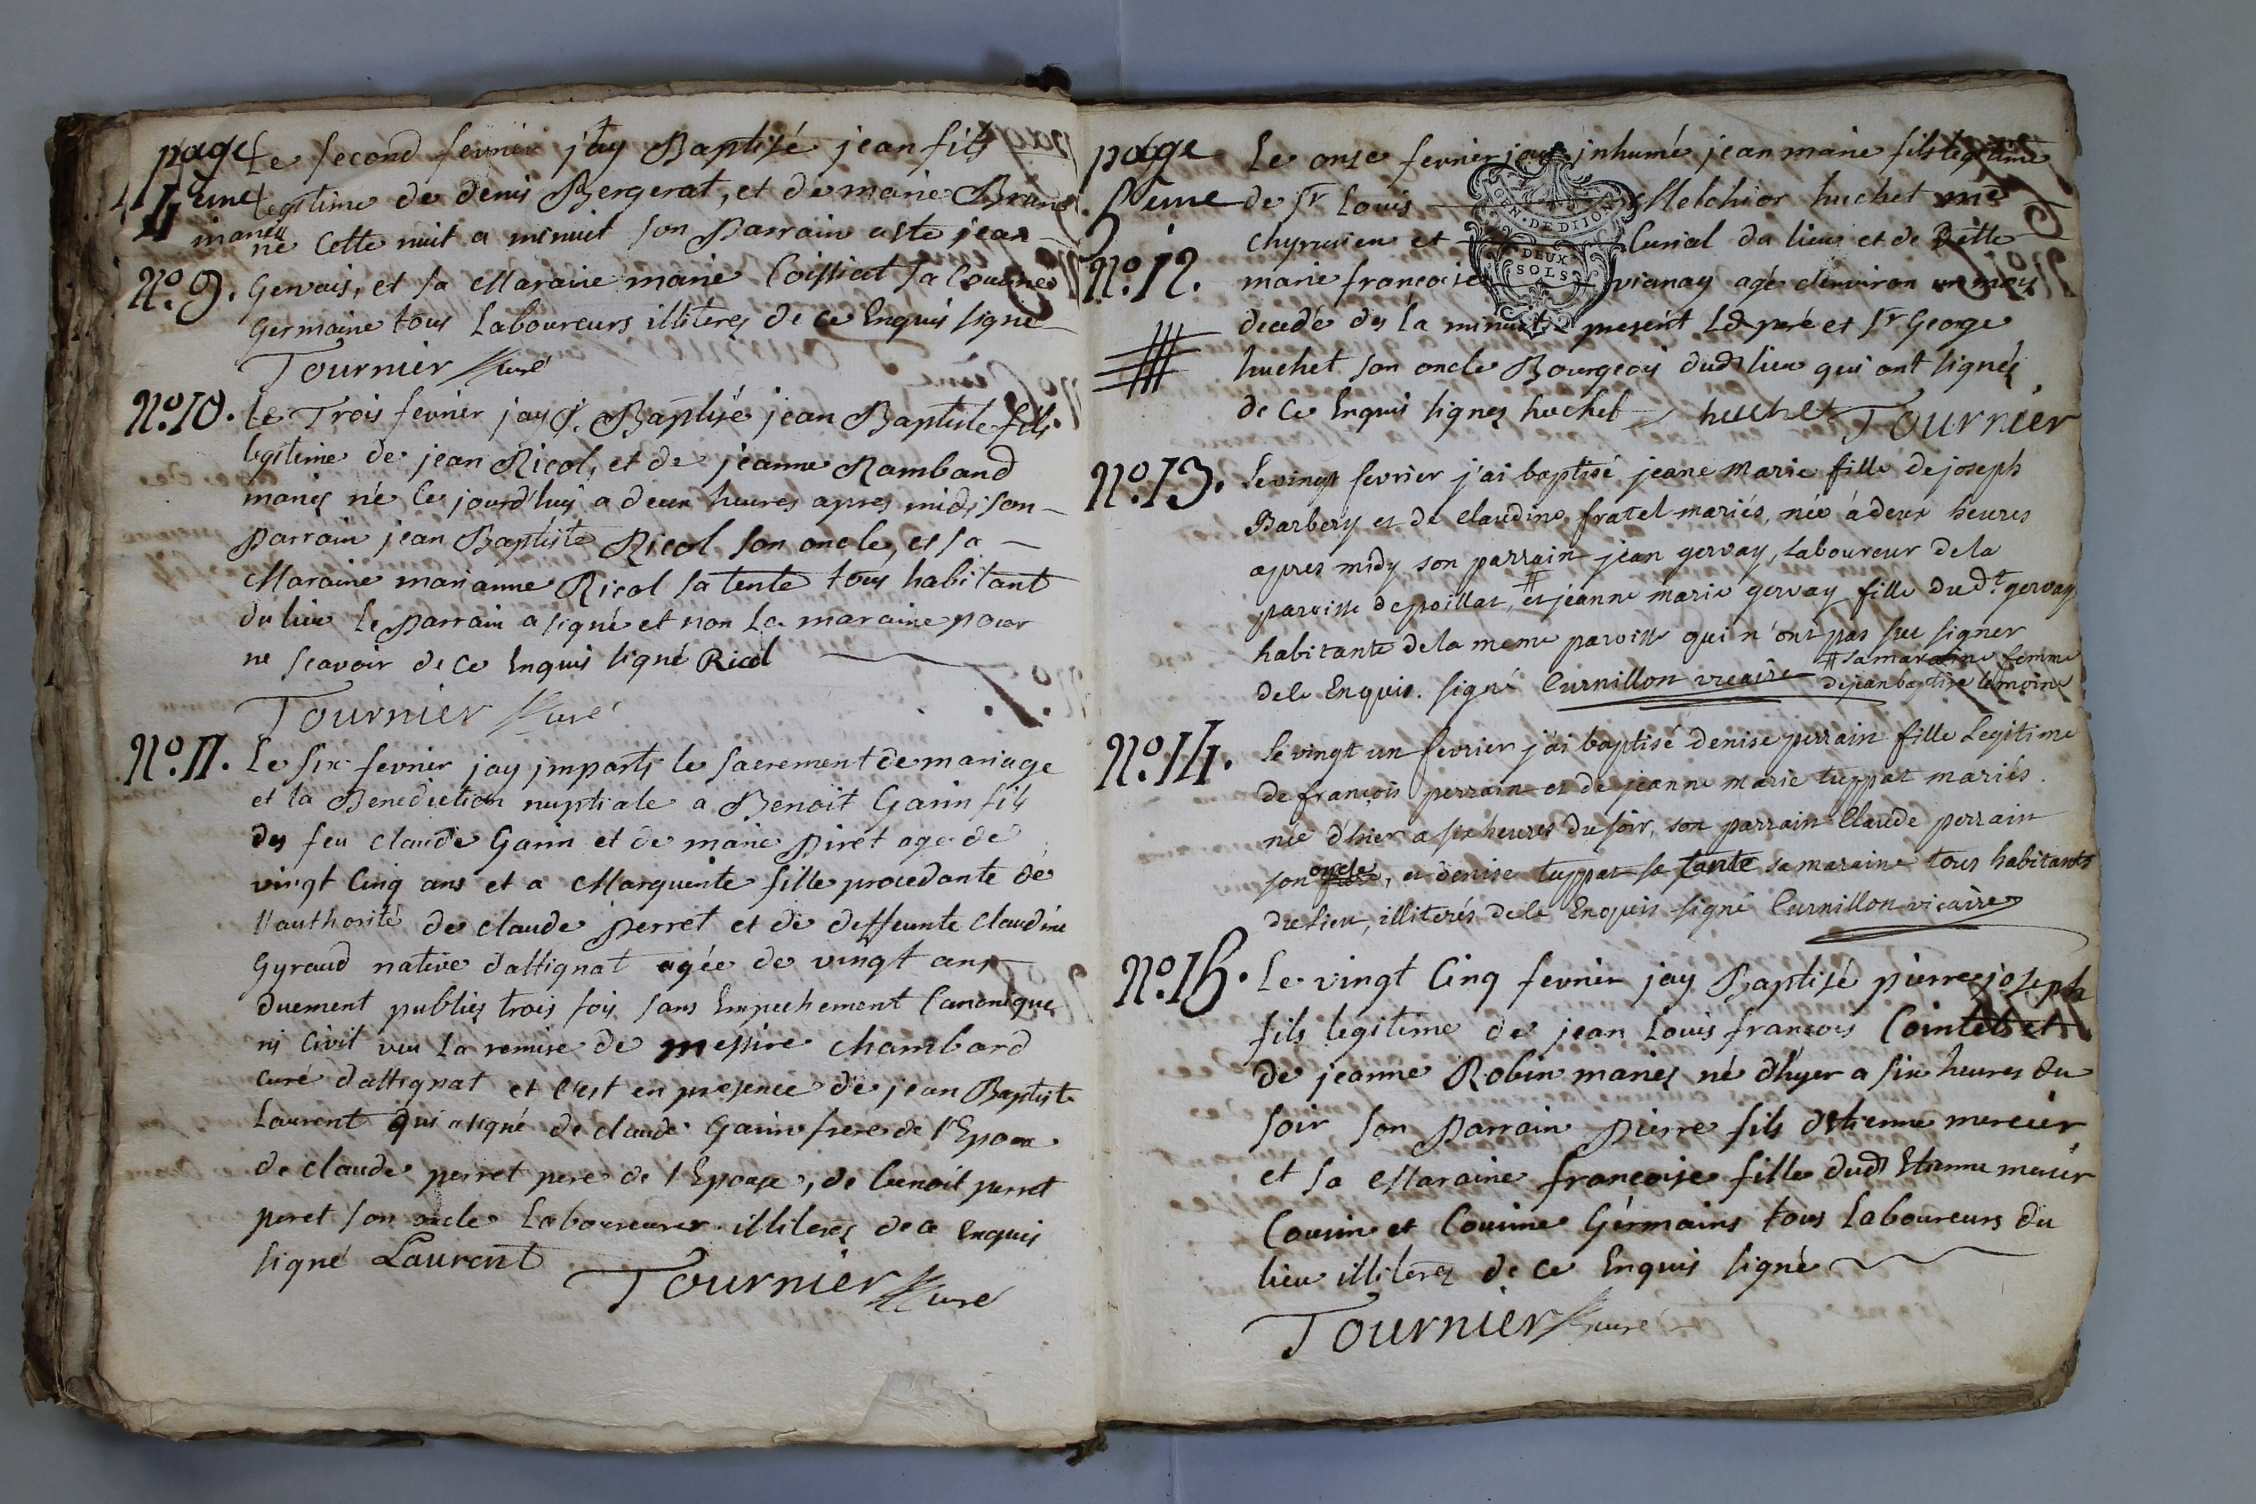 page
4eme
Le second fevrier jay Baptisé jean fils
legitime de denis Bergerat, et de marie Brune
mariés né Cette nuit a minuit son Parrain a este jean
No. 9. Gervais, et sa Maraine marie Coissiat sa Cousine
Germaine tous Laboureurs illiteres de ce Enquis signé
Tournier Curé
No. 10. Le Trois fevrier jay Baptisé jean Baptiste fils
legitime de jean Ricol, et de jeanne Rambaud
mariés né Ce jourd'huy a deux heures apres midi son
Parrain jean Baptiste Ricol son oncle, et sa
Maraine marianne Ricol sa tente tous habitant
du lieu Le Parrain a signé et non La maraine pour
ne scavoir de Ce Enquis signé Ricol
Tournier Curé
No. 11. Le six fevrier jay imparti le sacrement de mariage
et la Benediction nuptiale a Benoit Garin fils
des feu Claude Garin et de marie Piret age de
vingt Cinq ans et a Marguerite fille procedante de
l'authorité de Claude Perret et de deffunte Claudine
Gyraud native d'attignat agée de vingt ans
duement publies trois fois sans Empechement Canonique
ni Civil veu La remise de messire Chambard
curé d'attignat et c'est en presence de jean Baptiste
Laurent qui a signé de claude Garin frere de l'Epoux
de claude perret pere de l'Epouse, de benoit perret
peret son oncle Laboureurs illiteres de ce Enquis
signé Laurent
Tournier Curé
page
5eme
Le onze fevrier jay inhumé jean marie fils legitime
de Sr Louis Melchior huchet me
chyrurien et Curial du lieu et de Delle
No. 12. marie francoise vianay agé d'environ un mois
decedé des La minuit present Led pere et Sr George
huchet son oncle Bourgeois dud lieu qui ont signés
de Ce Enquis signes huchet huchet Tournier
GEN. DE DIJON
DEUX
SOLS
No. 13. Le vingt fevrier j'ai baptisé jeane marie fille de joseph
Barbery et de claudine fratel mariés, née à deux heures
apres midy son parrain jean gervay, Laboureur de la
paroisse de poillat, # et jeanne marie gervay fille du dt gervay
habitante de la meme paroisse qui n'ont pas sçu signer
de ce Enquis. signé Curnillon vicaire # sa maraine femme
de jean baptiste Lemoine
No. 14. Le vingt un fevrier j'ai baptisé denise perrain fille Legitime
de françois perrain et de jeanne marie tuppat mariés
née d'hier a six heures du soir, son parrain Claude perrain
son oncle, et denise tuppat sa tante sa maraine tous habitants
du lieu, illiterés de ce Enquis signé Curnillon vicaire
No. 15. Le vingt Cinq fevrier jay Baptisé pierre joseph
fils legitime de jean Louis françois Cointet et
de jeanne Robin mariés né d'hyer a six heures du
soir son Parrain Pierre fils d'etienne mercier
et sa Maraine francoise fille dud Etienne mercier
Cousin et Cousine Germains tous Laboureurs du
lieu illiteres de ce Enquis signé
Tournier Curé